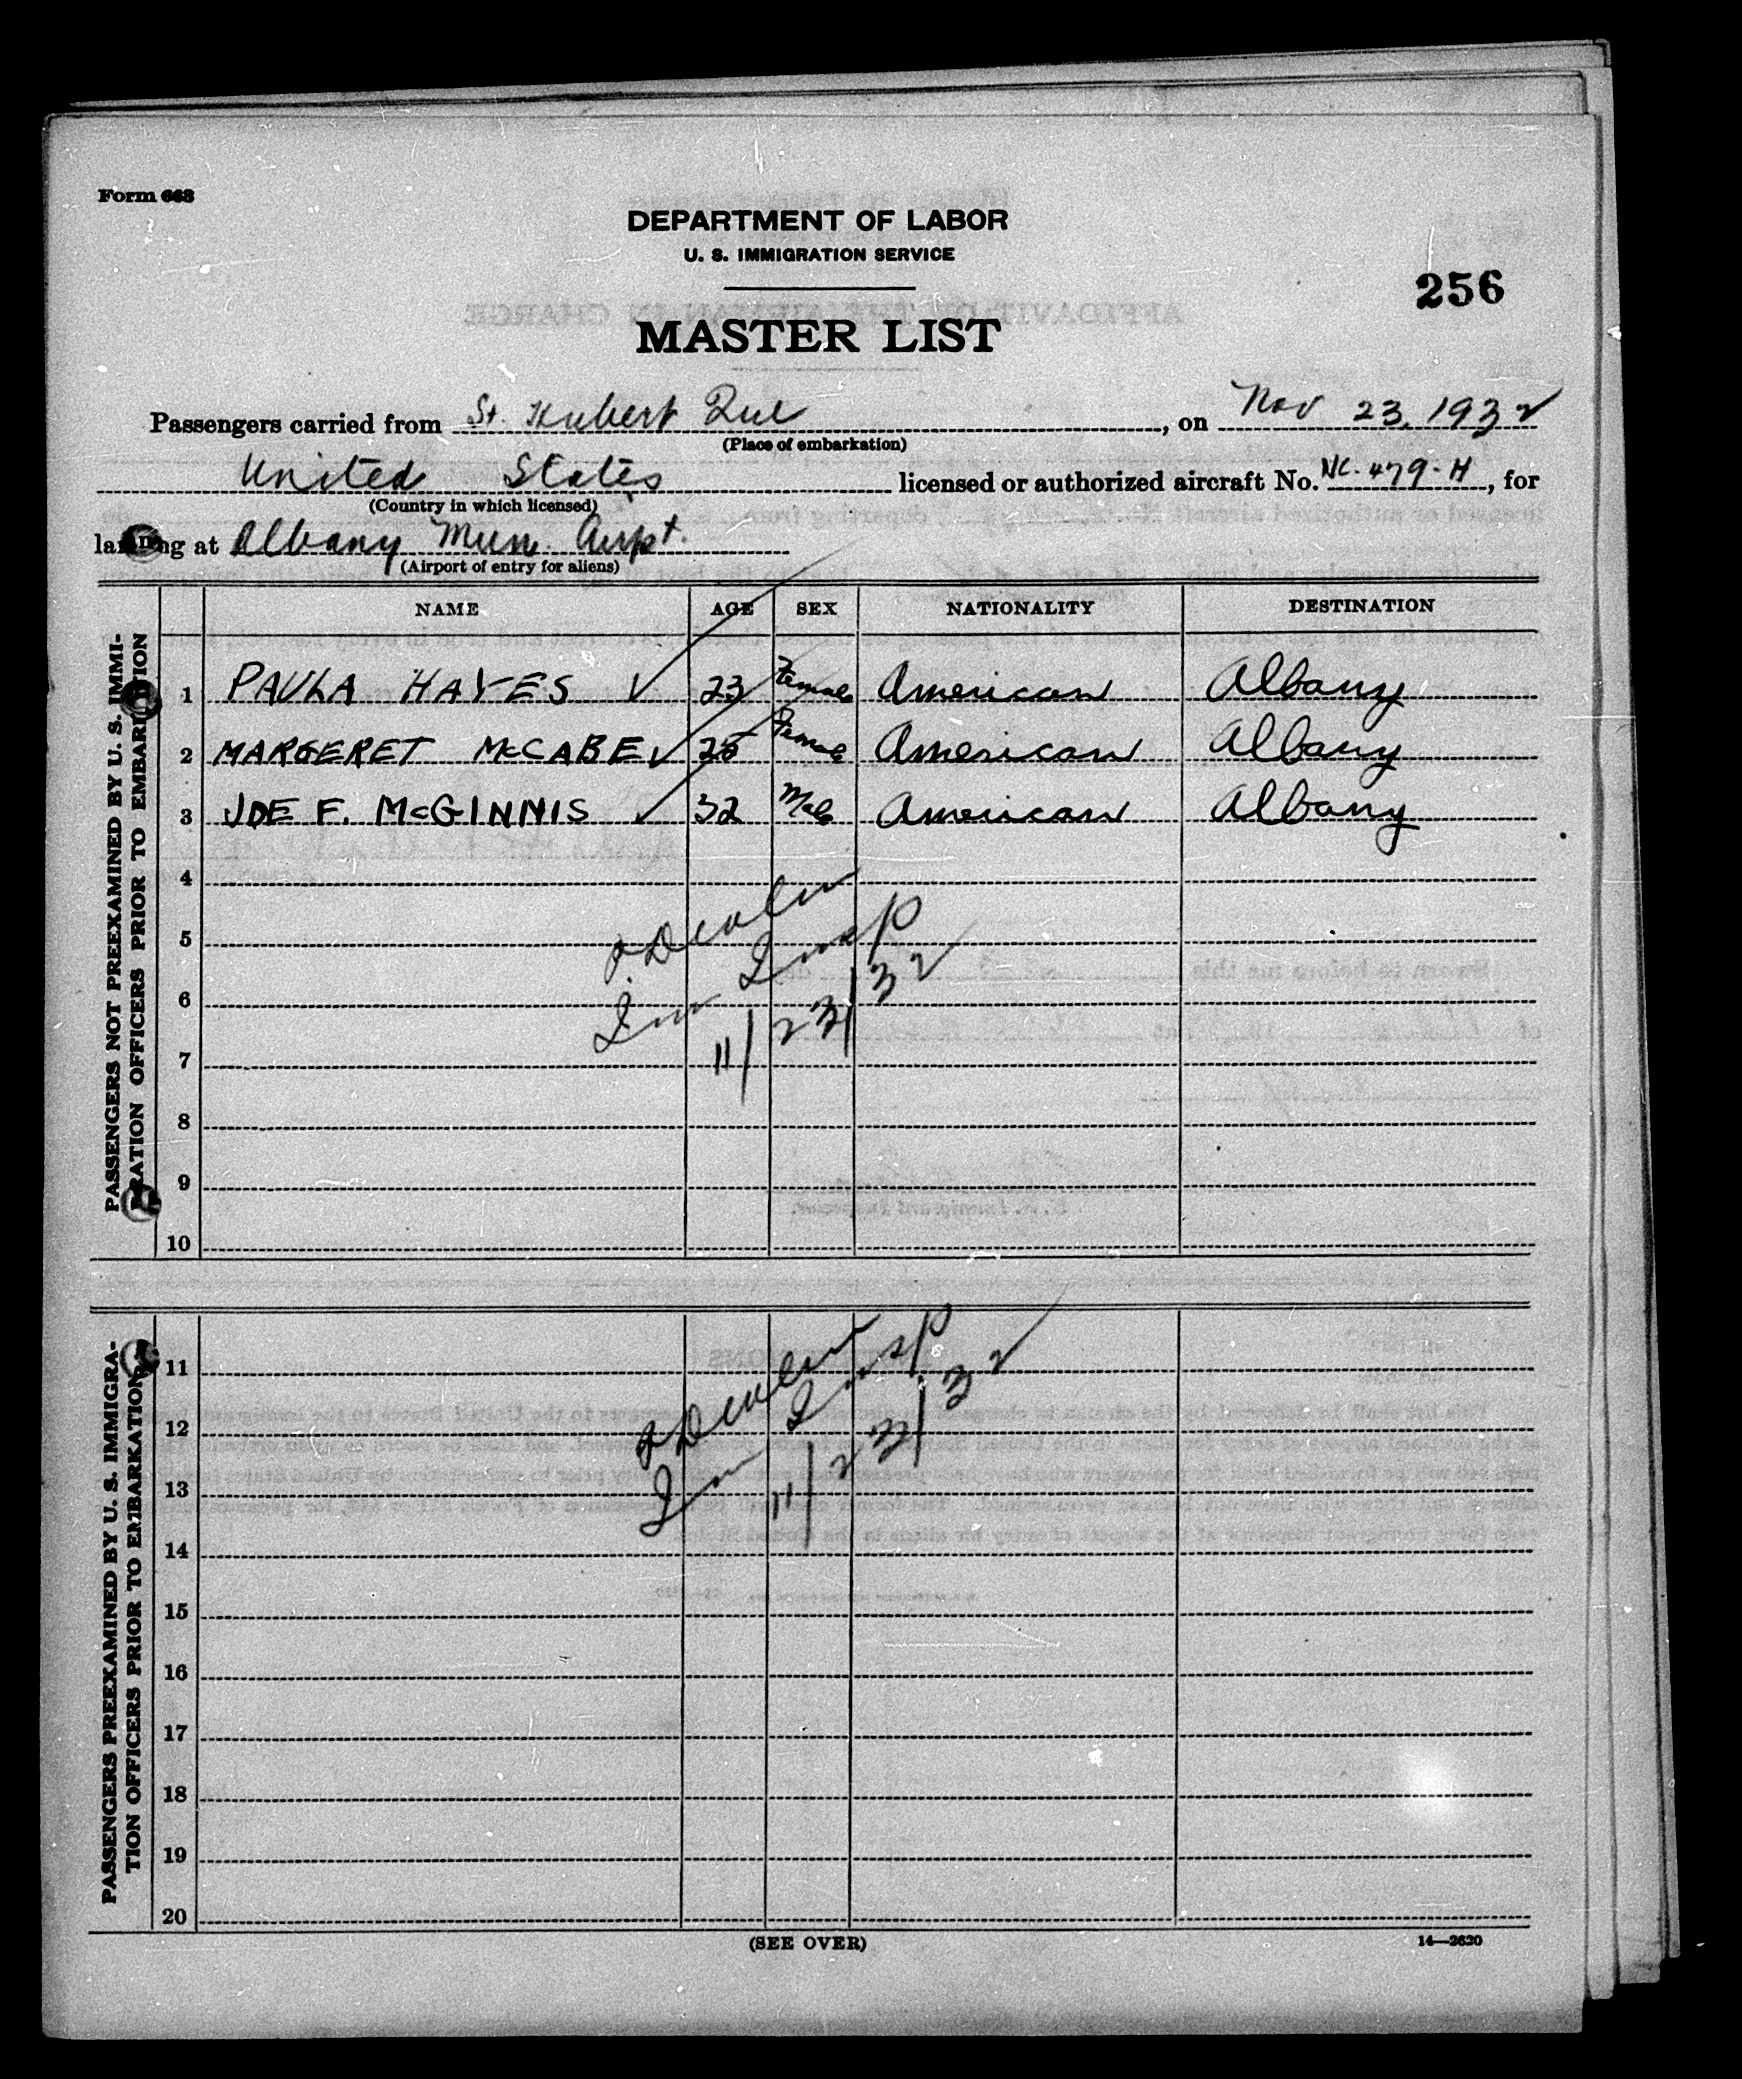 Form 663
DEPARTMENT OF LABOR
U. S. IMMIGRATION SERVICE
256
MASTER LIST
Passengers carried from St. Hubert Que, on Nov 23, 1932
(Place of embarkation)
United States licensed or authorized aircraft No. NC-479-H, for
(Country in which licensed)
landing at Albany Mun. Airpt.
(Airport of entry for aliens)
NAME AGE SEX NATIONALITY DESTINATION
PASSENGERS NOT PREEXAMINED BY U. S. IMMI-
GRATION OFFICERS PRIOR TO EMBARKATION
1 PAULA HAYES ✓ 23 Female American Albany
2 MARGERET McCABE ✓ 25 Female American Albany
3 JOE F. McGINNIS ✓ 32 Male American Albany
4
5
6
7
8
9
10
Devlin
Imm Insp
11/23/32
PASSENGERS PREEXAMINED BY U. S. IMMIGRA-
TION OFFICERS PRIOR TO EMBARKATION
11
12
13
14
15
16
17
18
19
20
Devlin
Imm Insp
11/23/32
(SEE OVER)
14—2620